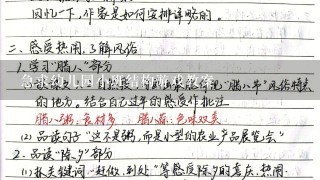 回忆一下,作家是如何安排详略的。
二、感受热闹,了解风俗
1. 学习“腊八”部分
急求幼儿园小班结构游戏教案
的地方。结合自己过年的感受作批注
腊八粥:食材多 腊八蒜:色味双美
(2) 品读句子“这不是粥,而是小型的农业产品展览会”
2. 品读“除夕”部分
(1) 抓关键词,“赶做、到处”等感受除夕的喜庆、热闹